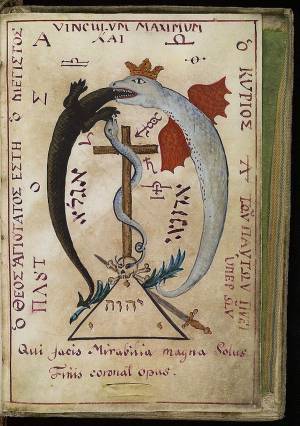 VINCULUM MAXIMUM
ΚΑΙ
Α
Ρ
Σ
Ο
Ο ΘΕΟΣ ΑΓΙΟΤΑΤΟΣ ΕΣΤΗ Ο ΜΕΓΙΣΤΟΣ
Ο ΚΥΡΙΟΣ
ΠΑΣΤ
אגלא
אדוני
יהוה
Qui facis Mirabilia magna Solus
Finis coronat opus.